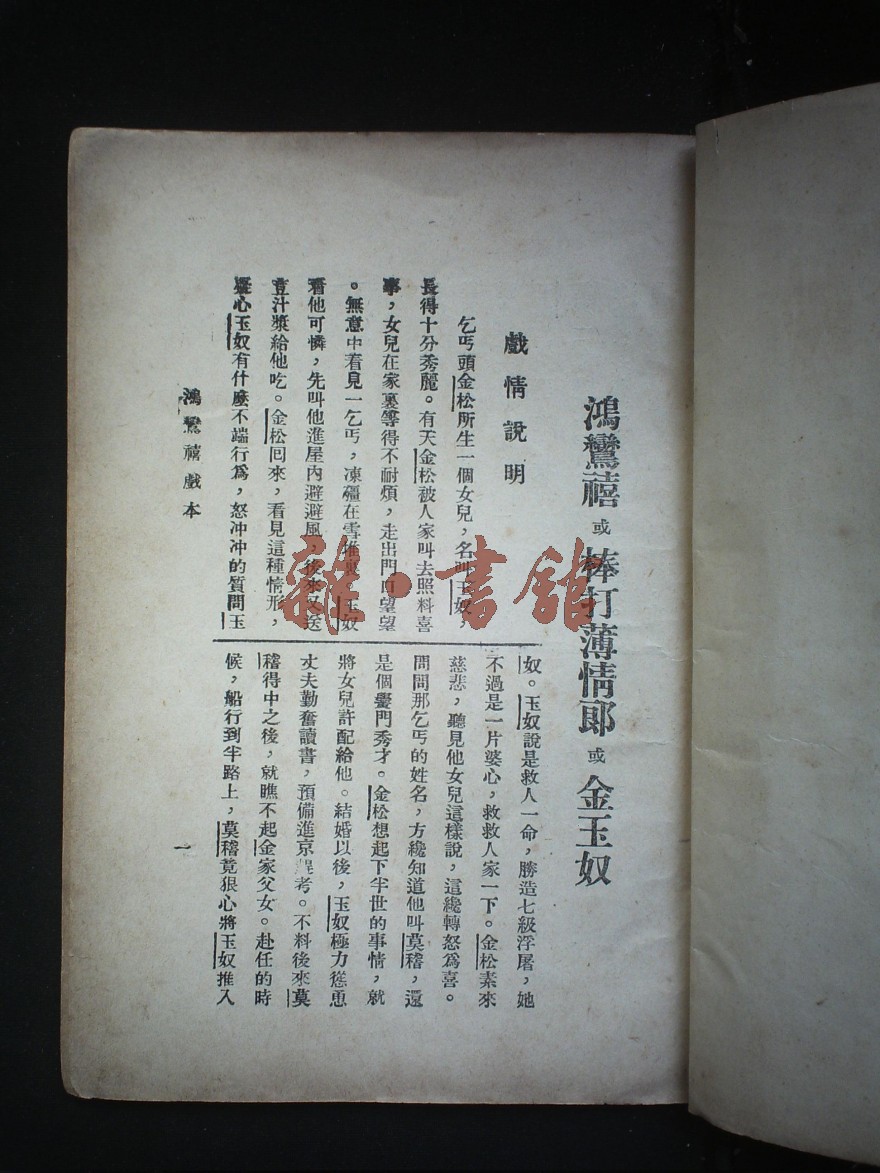 鴻鸞禧 或 棒打薄情郎 或 金玉奴
戲情說明
乞丐頭金松所生一個女兒，名叫玉奴，
長得十分秀麗。有天金松被人家叫去照料喜
事，女兒在家裏等得不耐煩，走出門口望望
。無意中看見一乞丐，凍疆在雪堆裏。玉奴
看他可憐，先叫他進屋內避避風，後來又送
荳汁漿給他吃。金松回來，看見這種情形，
疑心玉奴有什麼不端行爲，怒冲冲的質問玉
奴。玉奴說是救人一命，勝造七級浮屠，她
不過是一片婆心，救救人家一下。金松素來
慈悲，聽見他女兒這樣說，這纔轉怒爲喜。
問問那乞丐的姓名，方纔知道他叫莫稽，還
是個黌門秀才。金松想起下半世的事情，就
將女兒許配給他。結婚以後，玉奴極力慫恿
丈夫勤奮讀書，預備進京趕考。不料後來莫
稽得中之後，就瞧不起金家父女。赴任的時
候，船行到半路上，莫稽竟狠心將玉奴推入
鴻鸞禧戲本
一
雜·書館